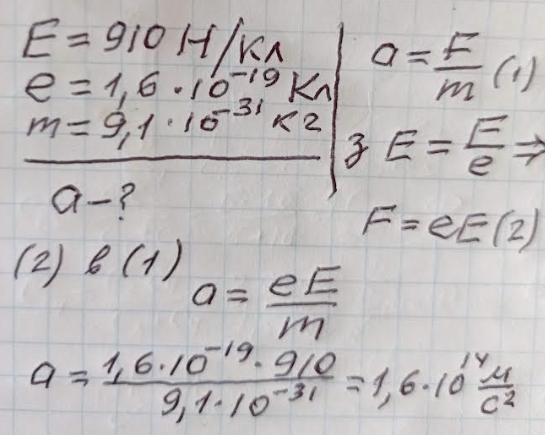 E = 910 Н/Кл
e = 1,6 · 10⁻¹⁹ Кл
m = 9,1 · 10⁻³¹ кг
a – ?
a = F/m (1)
з E = F/e ⇒
F = eE (2)
(2) в (1)
a = eE/m
a = 1,6·10⁻¹⁹·910 / 9,1·10⁻³¹ = 1,6·10¹⁴ м/с²